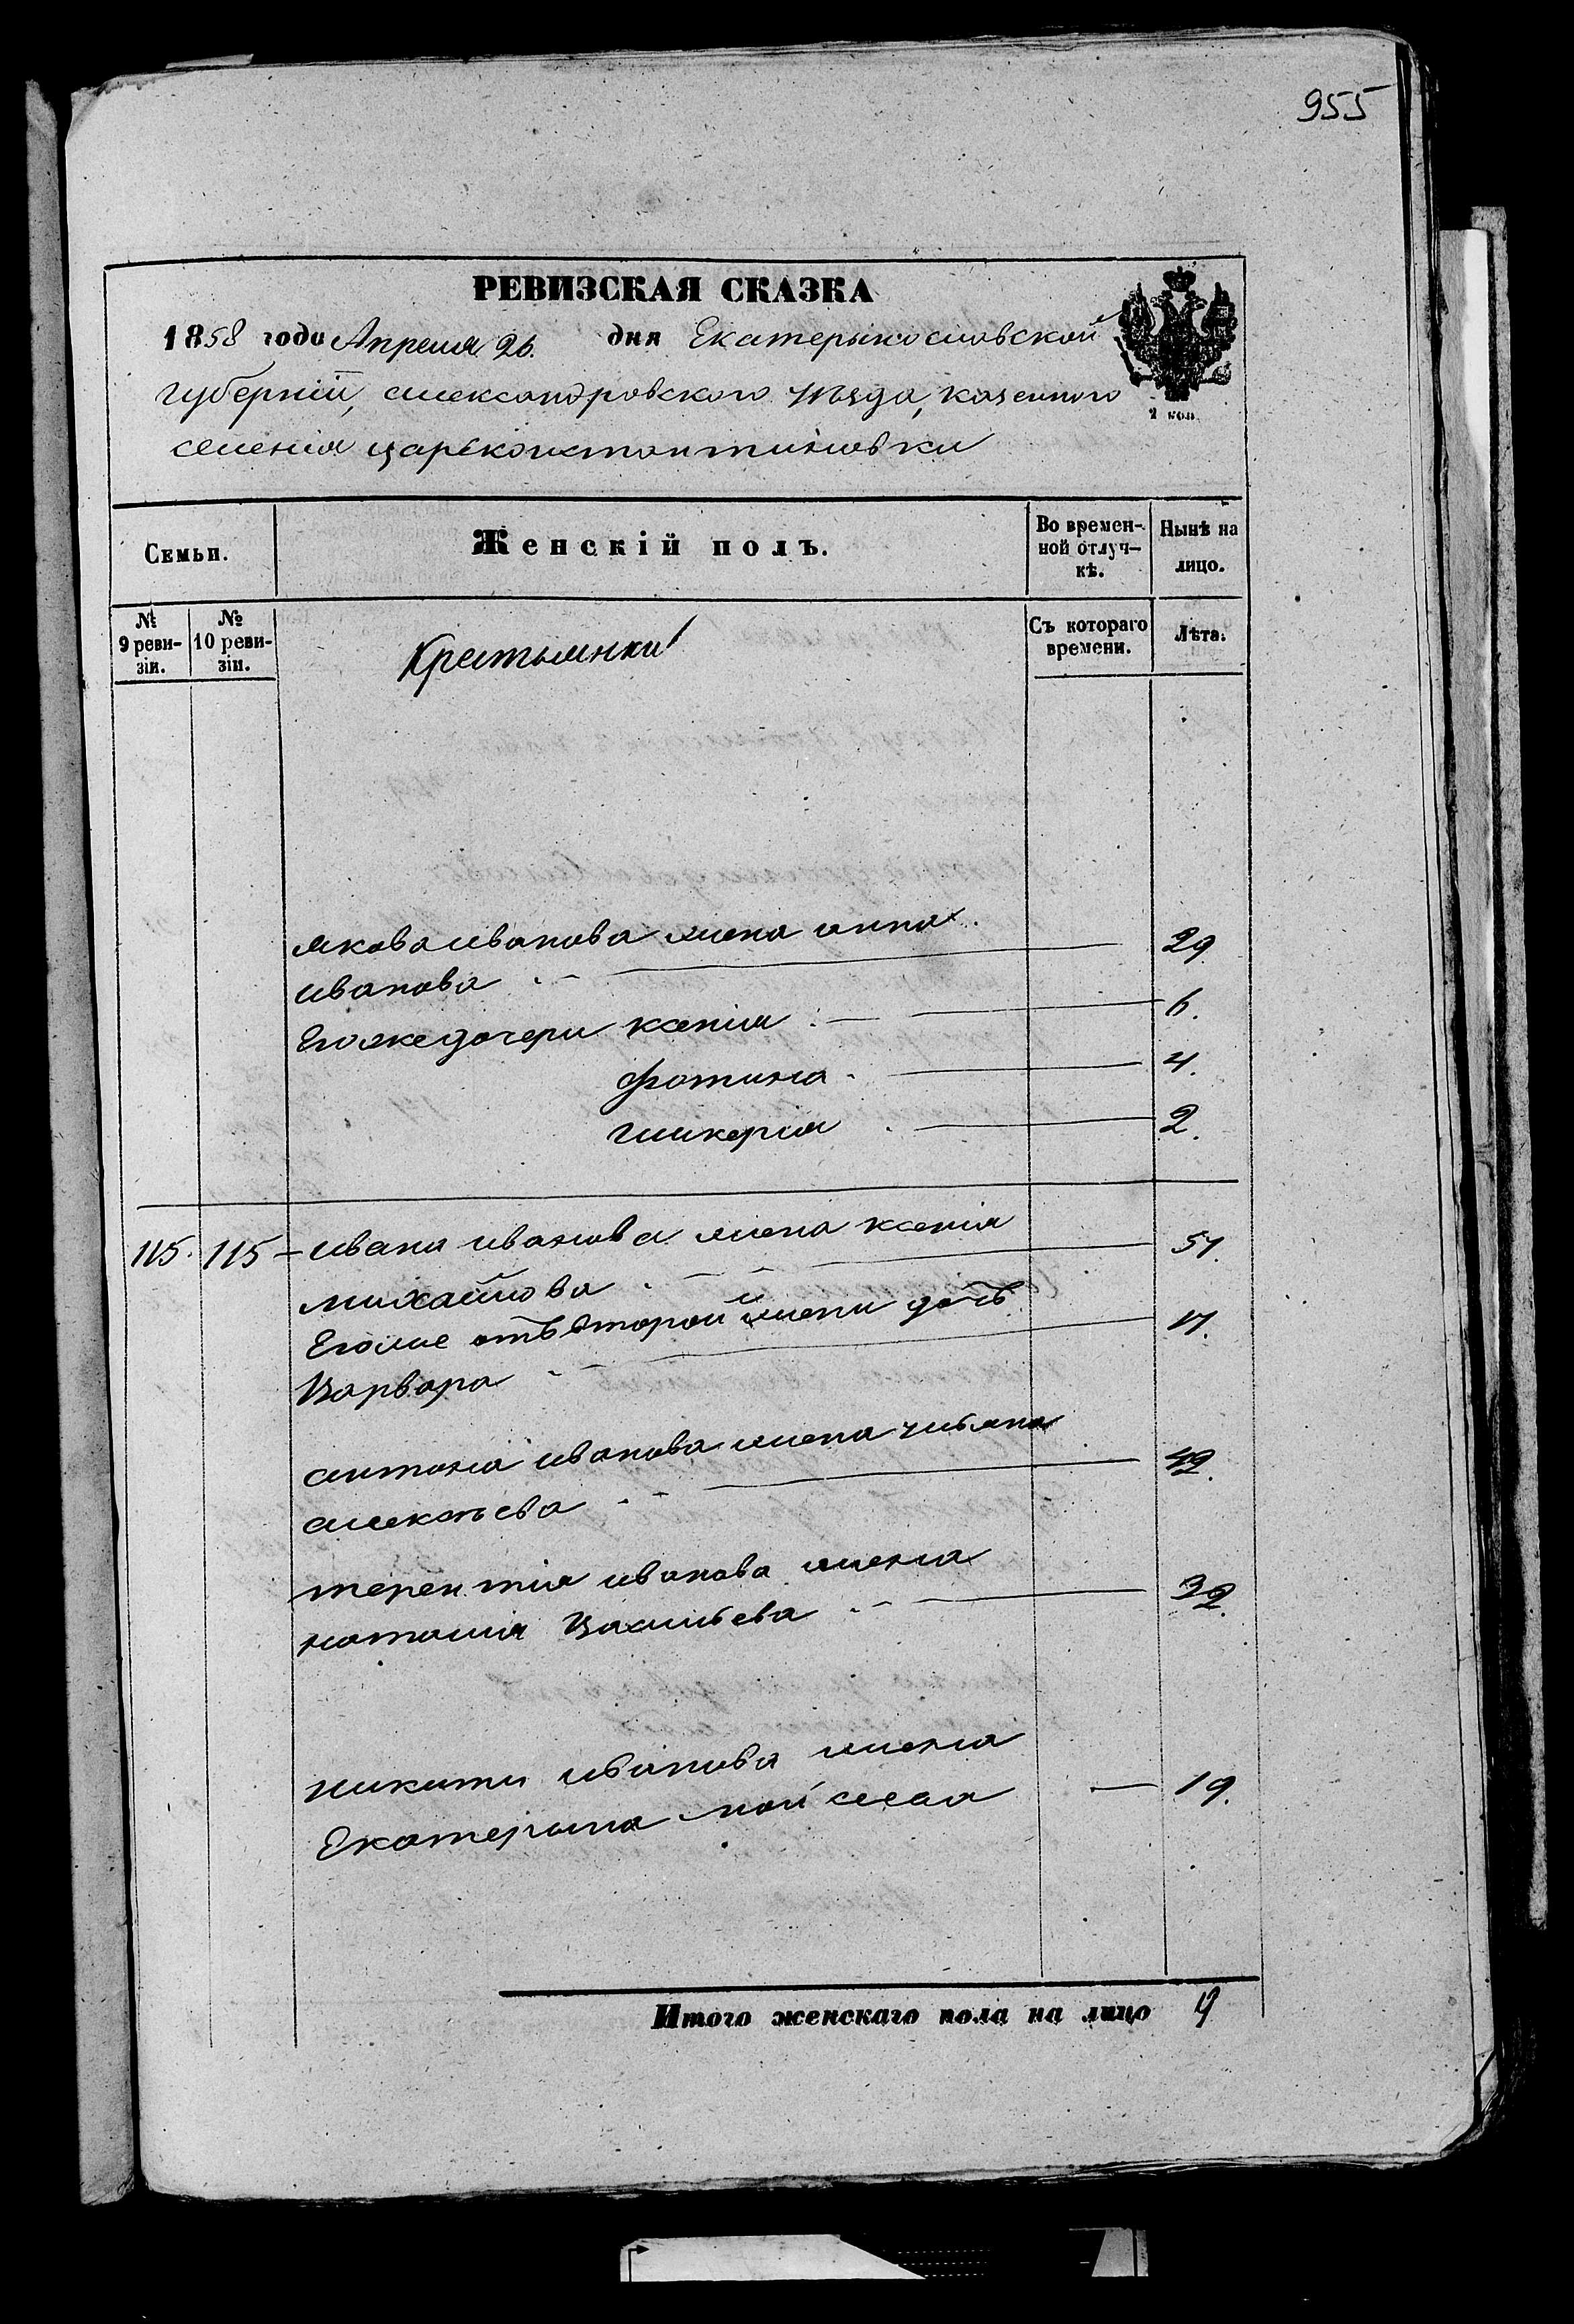 955
РЕВИЗСКАЯ СКАЗКА
1858 года Апреля 26. дня Екатерынославской
губерніи, александровского уѣзда, казенного
селенія царьконстантиновки
2 коп.
Семьи.
Женскій полъ.
Во времен-
ной отлуч-
кѣ.
Нынѣ на
лицо.
№
9 реви-
зіи.
№
10 реви-
зіи.
Крестьянки
Съ котораго
времени.
Лѣта.
якова иванова жена анна
иванова 29
Его же дочери ксенія 6.
фотина 4.
гликерія 2.
115. 115 ивана иванова жена ксенія
михайлова 51.
Его же отъ второй жены дочь
Варвара 17.
антона иванова жена ульяна
алексѣева 42.
терентія иванова жена
наталія Васильева 32.
никиты иванова жена
Екатерина мойсеева 19.
Итого женскаго пола на лицо 9